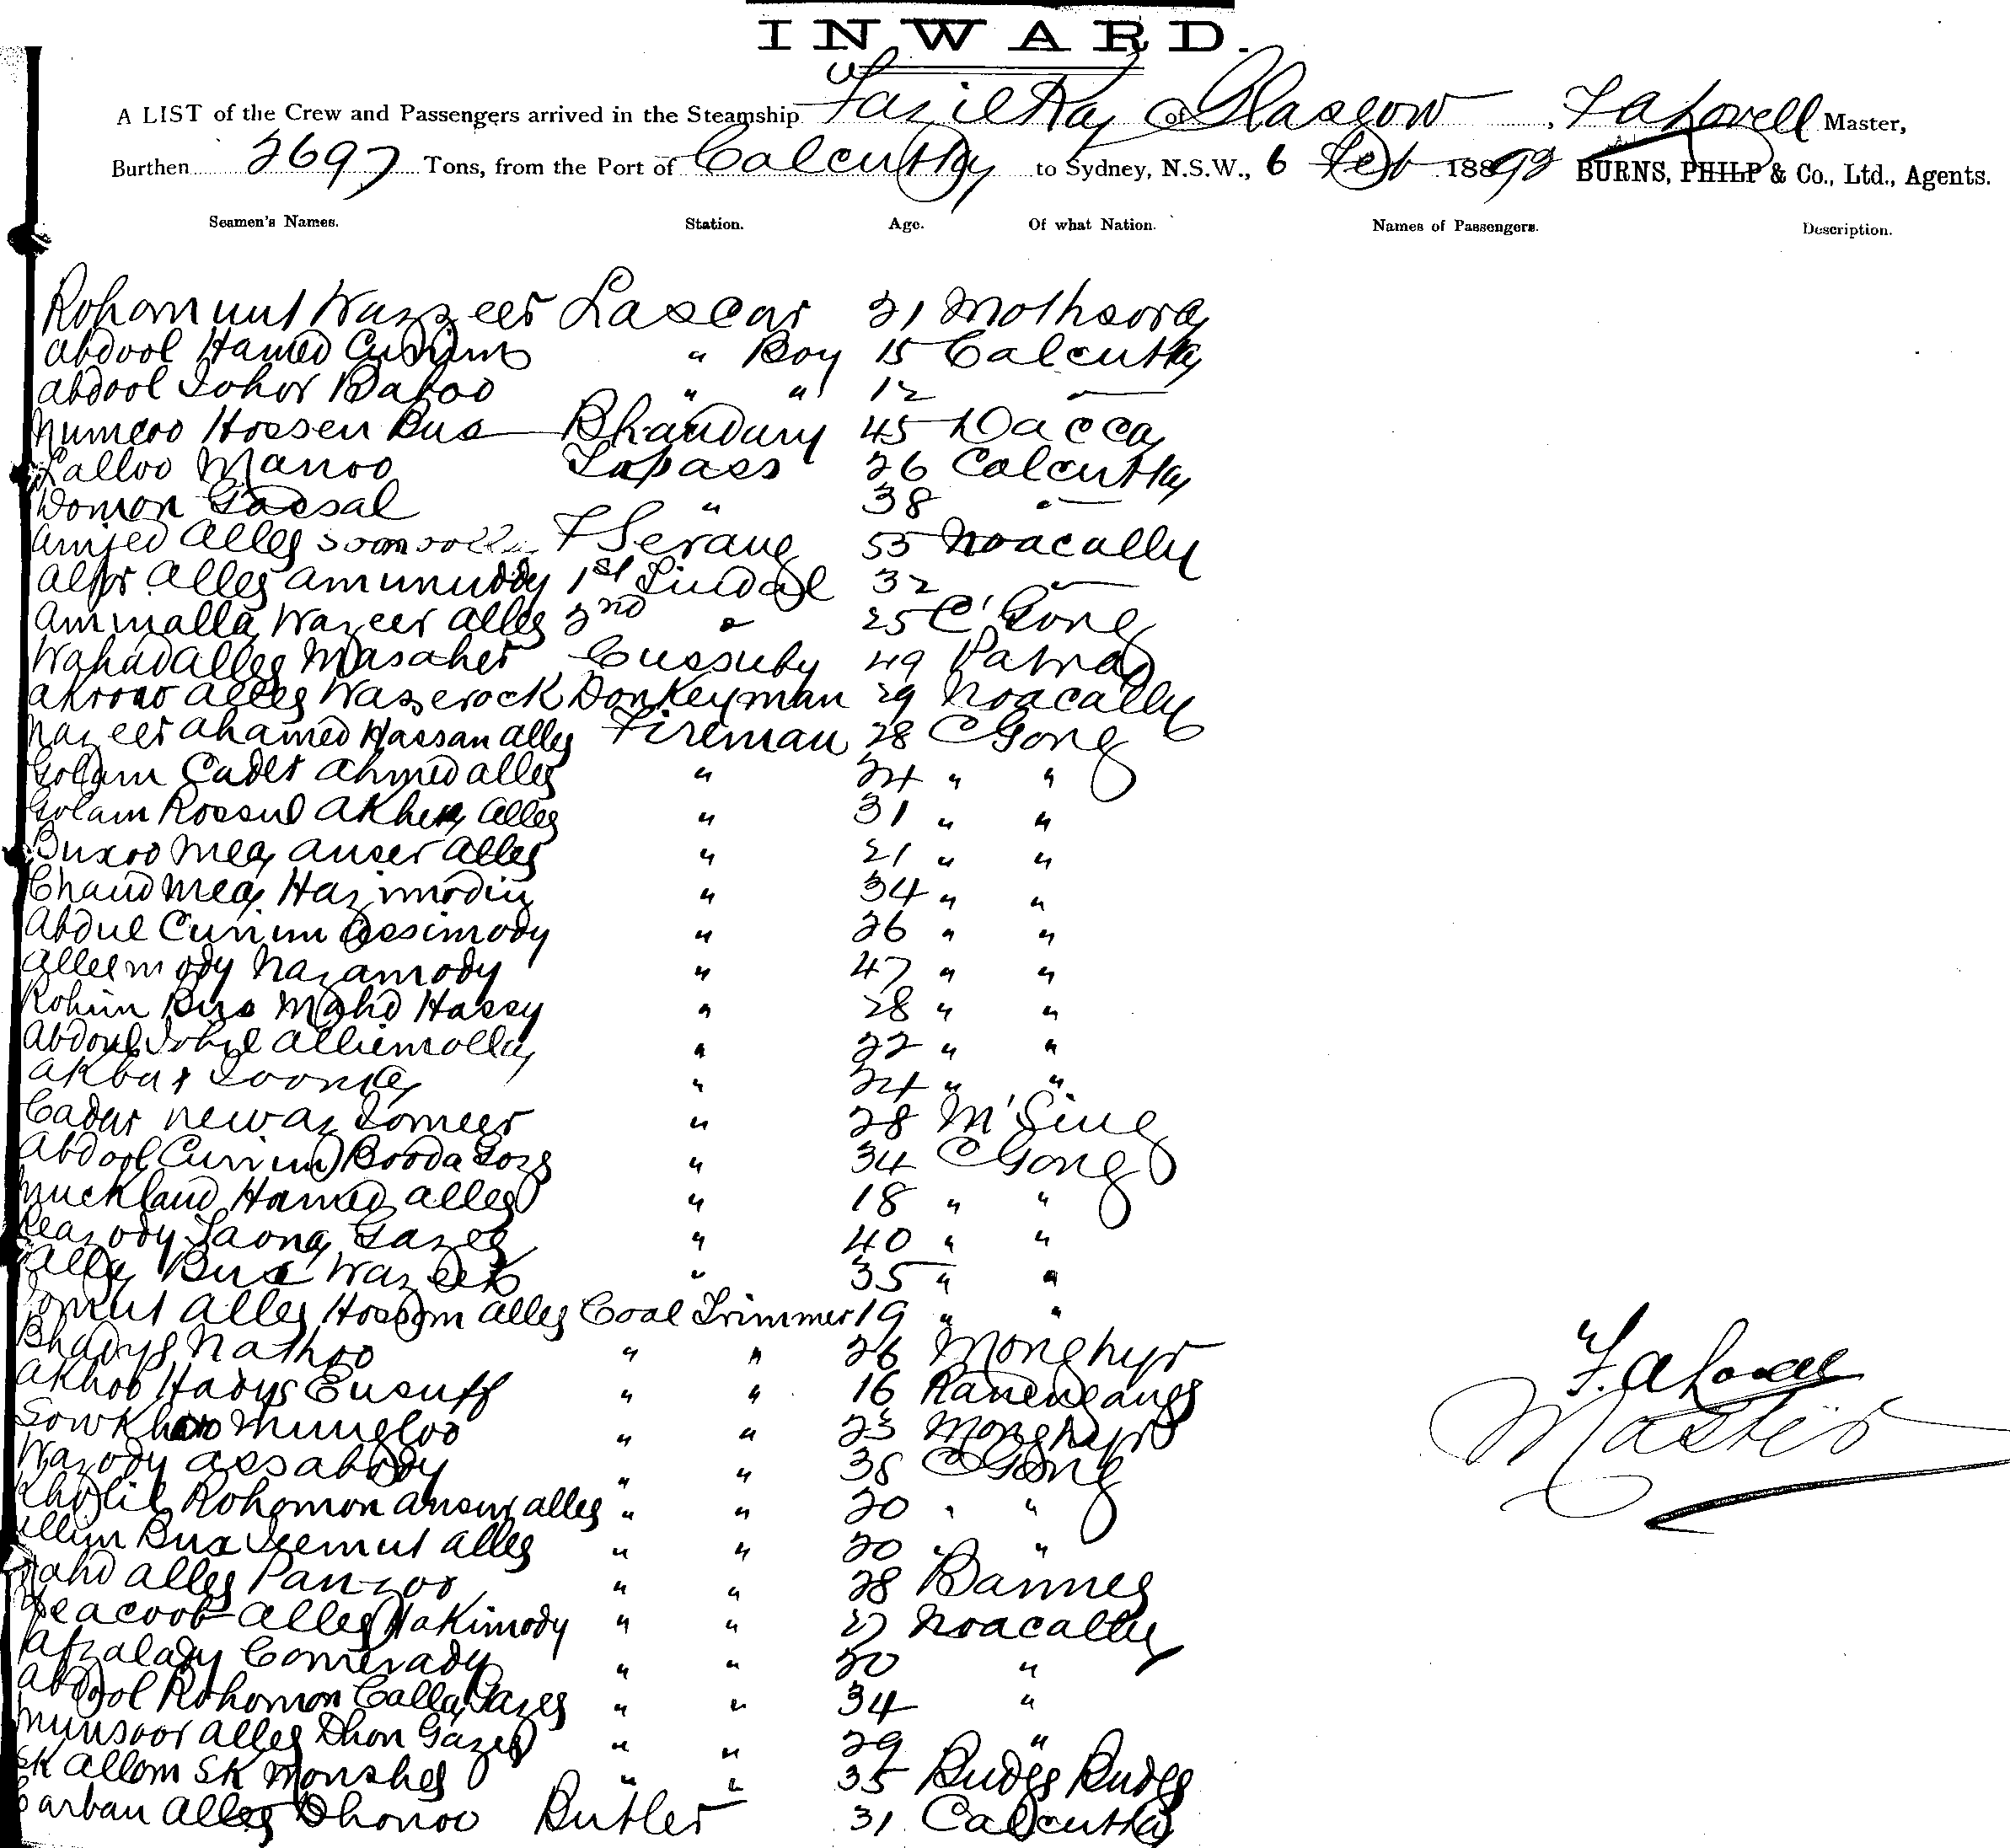 INWARD.
A LIST of the Crew and Passengers arrived in the Steamship Fazilka of Glasgow, F A Lovell Master,
Burthen 2697 Tons, from the Port of Calcutta to Sydney, N.S.W., 6 Feb 1893 BURNS, PHILP & Co., Ltd., Agents.
Seamen's Names. Station. Age. Of what Nation. Names of Passengers. Description.
Rohomunt Wazzeer Lascar 21
Abdool Hamed Currim " Boy 15 Calcutta
Abdool Johor Baboo " " 12 —
Hossen Bux Bhandary 45 Dacca
Lalloo Manoo Topass 26 Calcutta
Domon Gossal " 38 " —
Amjed Alley F Serang 55 Noacally
Alley Amunuddy 1st Tindal 32 —
Ammalla Wazeer Alley 2nd " 25 C'Gong
Wahad Alley Masaher Cussuby 49 Patna
Alley Donkeyman 29 Noacally
Nazeer Ahamed Hassan Alley Fireman 28 CGong
Golam Cader Ahmed Alley " 24 " "
Golam Rossul Alley " 31 " "
Buxoo Mea Anser Alley " 21 " "
Chand Mea Hazimodin " 34 " "
Abdul Currim Assimody " 26 " "
Alleemody Nazamody " 47 " "
Rohim Bux Mahd Hassy " 28 " "
Abdoul Alliemolla " 22 " "
Akbar " 24 " "
Cadar Newaz Tomeer " 28 M'Sing
Abdool Currim Booda Gozy " 34 CGong
Hamed Alley " 18 " "
Reazody Gazee " 40 " "
Alla Bux Wazeer " 35 " "
Alley Hossom Alley Coal Trimmer 19 " "
Nathoo " " 26 Monghyr
Eusuff " " 16
Mungloo " " 23 Monghyr
Wazody Assabody " " 35 CGong
Kholil Rohomon Alley " " 20 " "
Bux Alley " " 20 " "
Alley Panzoo " " 28
Yeacoob Alley Hakimody " " 27 Noacally
Afzalady Comerady " " 20 "
Abdool Rohomon Calla Gazey " " 34 "
Munsoor Alley Dhon Gazee " " 29 "
Sk Allom Sk Monshey " " 35 Budge Budge
Alley Dhonoo Butler 31 Calcutta
F. A Lovell
Master